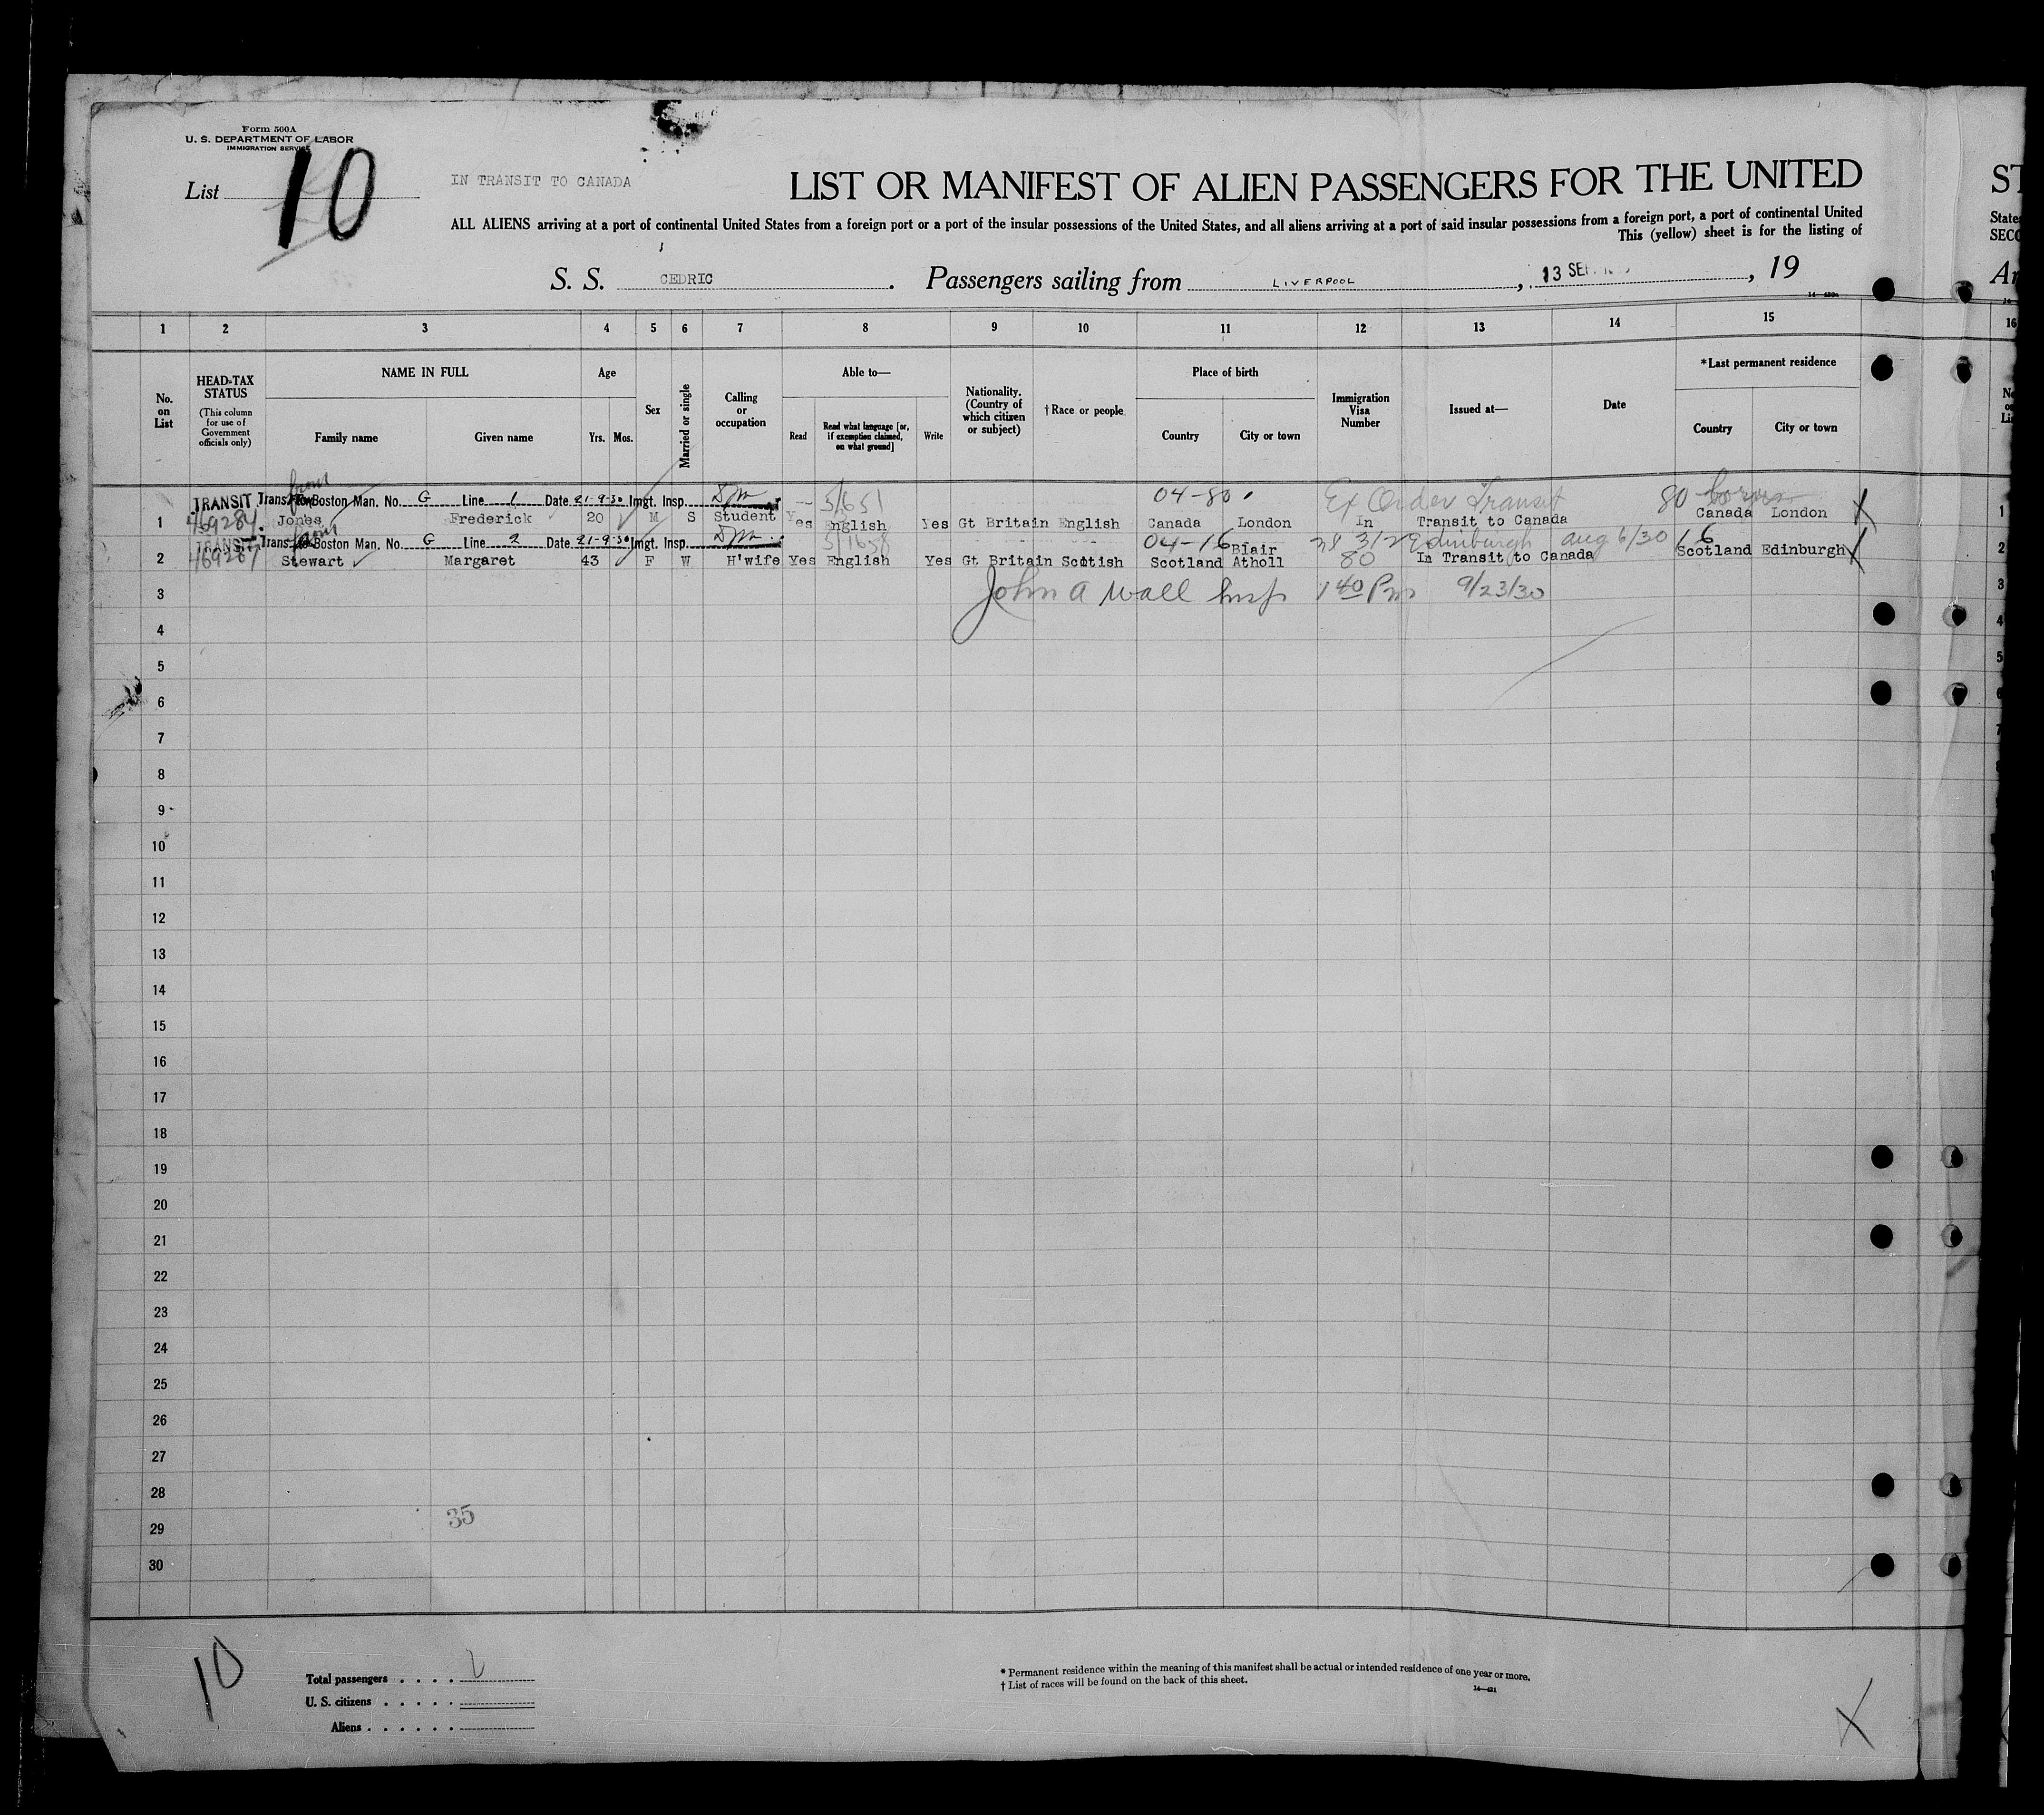 Form 500A
U. S. DEPARTMENT OF LABOR
IMMIGRATION SERVICE
List 10
IN TRANSIT TO CANADA
LIST OR MANIFEST OF ALIEN PASSENGERS FOR THE UNITED
ST
ALL ALIENS arriving at a port of continental United States from a foreign port or a port of the insular possessions of the United States, and all aliens arriving at a port of said insular possessions from a foreign port, a port of continental United
States
This (yellow) sheet is for the listing of
SECO
S. S. CEDRIC. Passengers sailing from LIVERPOOL, 13 SEP, 19
Ar
1 2 3 4 5 6 7 8 9 10 11 12 13 14 15 16
No. on List
HEAD-TAX STATUS
(This column for use of Government officials only)
NAME IN FULL
Family name Given name
Age
Yrs. Mos.
Sex
Married or single
Calling or occupation
Able to—
Read
Read what language [or, if exemption claimed, on what ground]
Write
Nationality. (Country of which citizen or subject)
†Race or people
Place of birth
Country City or town
Immigration Visa Number
Issued at—
Date
*Last permanent residence
Country City or town
TRANSIT Trans. from Boston Man. No. G Line 1 Date 21-9-30 Imgt. Insp. 5/651 04-80 Ex Order Transit 80 born
1 469284 Jones Frederick 20 M S Student Yes English Yes Gt Britain English Canada London In Transit to Canada Canada London X 1
TRANSIT Trans. from Boston Man. No. G Line 2 Date 21-9-30 Imgt. Insp. 5/1658 04-16 312 Edinburgh Aug 6/30 16
2 469287 Stewart Margaret 43 F W H'wife Yes English Yes Gt Britain Scotish Scotland Blair Atholl 80 In Transit to Canada Scotland Edinburgh X 2
3 John A Wall Insp 1 40 Pm 9/23/30 3
4 4
5 5
6 6
7 7
8
9
10
11
12
13
14
15
16
17
18
19
20
21
22
23
24
25
26
27
28
35
29
30
10
Total passengers
U. S. citizens
Aliens
* Permanent residence within the meaning of this manifest shall be actual or intended residence of one year or more.
† List of races will be found on the back of this sheet.
14—421
X